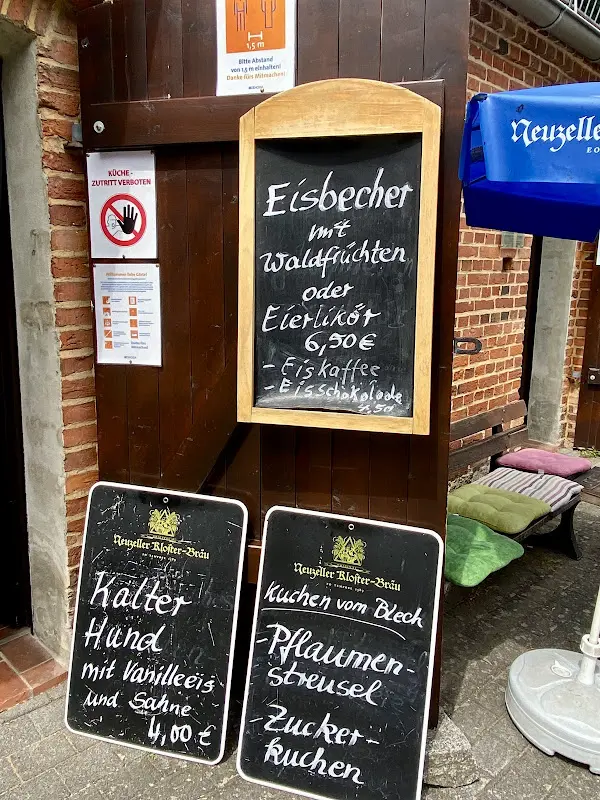 1,5 m
Bitte Abstand
von 1,5 m einhalten!
Danke fürs Mitmachen!
KÜCHE -
ZUTRITT VERBOTEN
Eisbecher
mit
Waldfrüchten
oder
Eierlikör
6,50 €
- Eiskaffee
- Eisschokolade
4,50
Neuzeller
Neuzeller Kloster-Bräu
Kalter
Hund
mit Vanilleeis
und Sahne
4,00 €
Neuzeller Kloster-Bräu
Kuchen vom Blech
- Pflaumen-
streusel
- Zucker-
kuchen